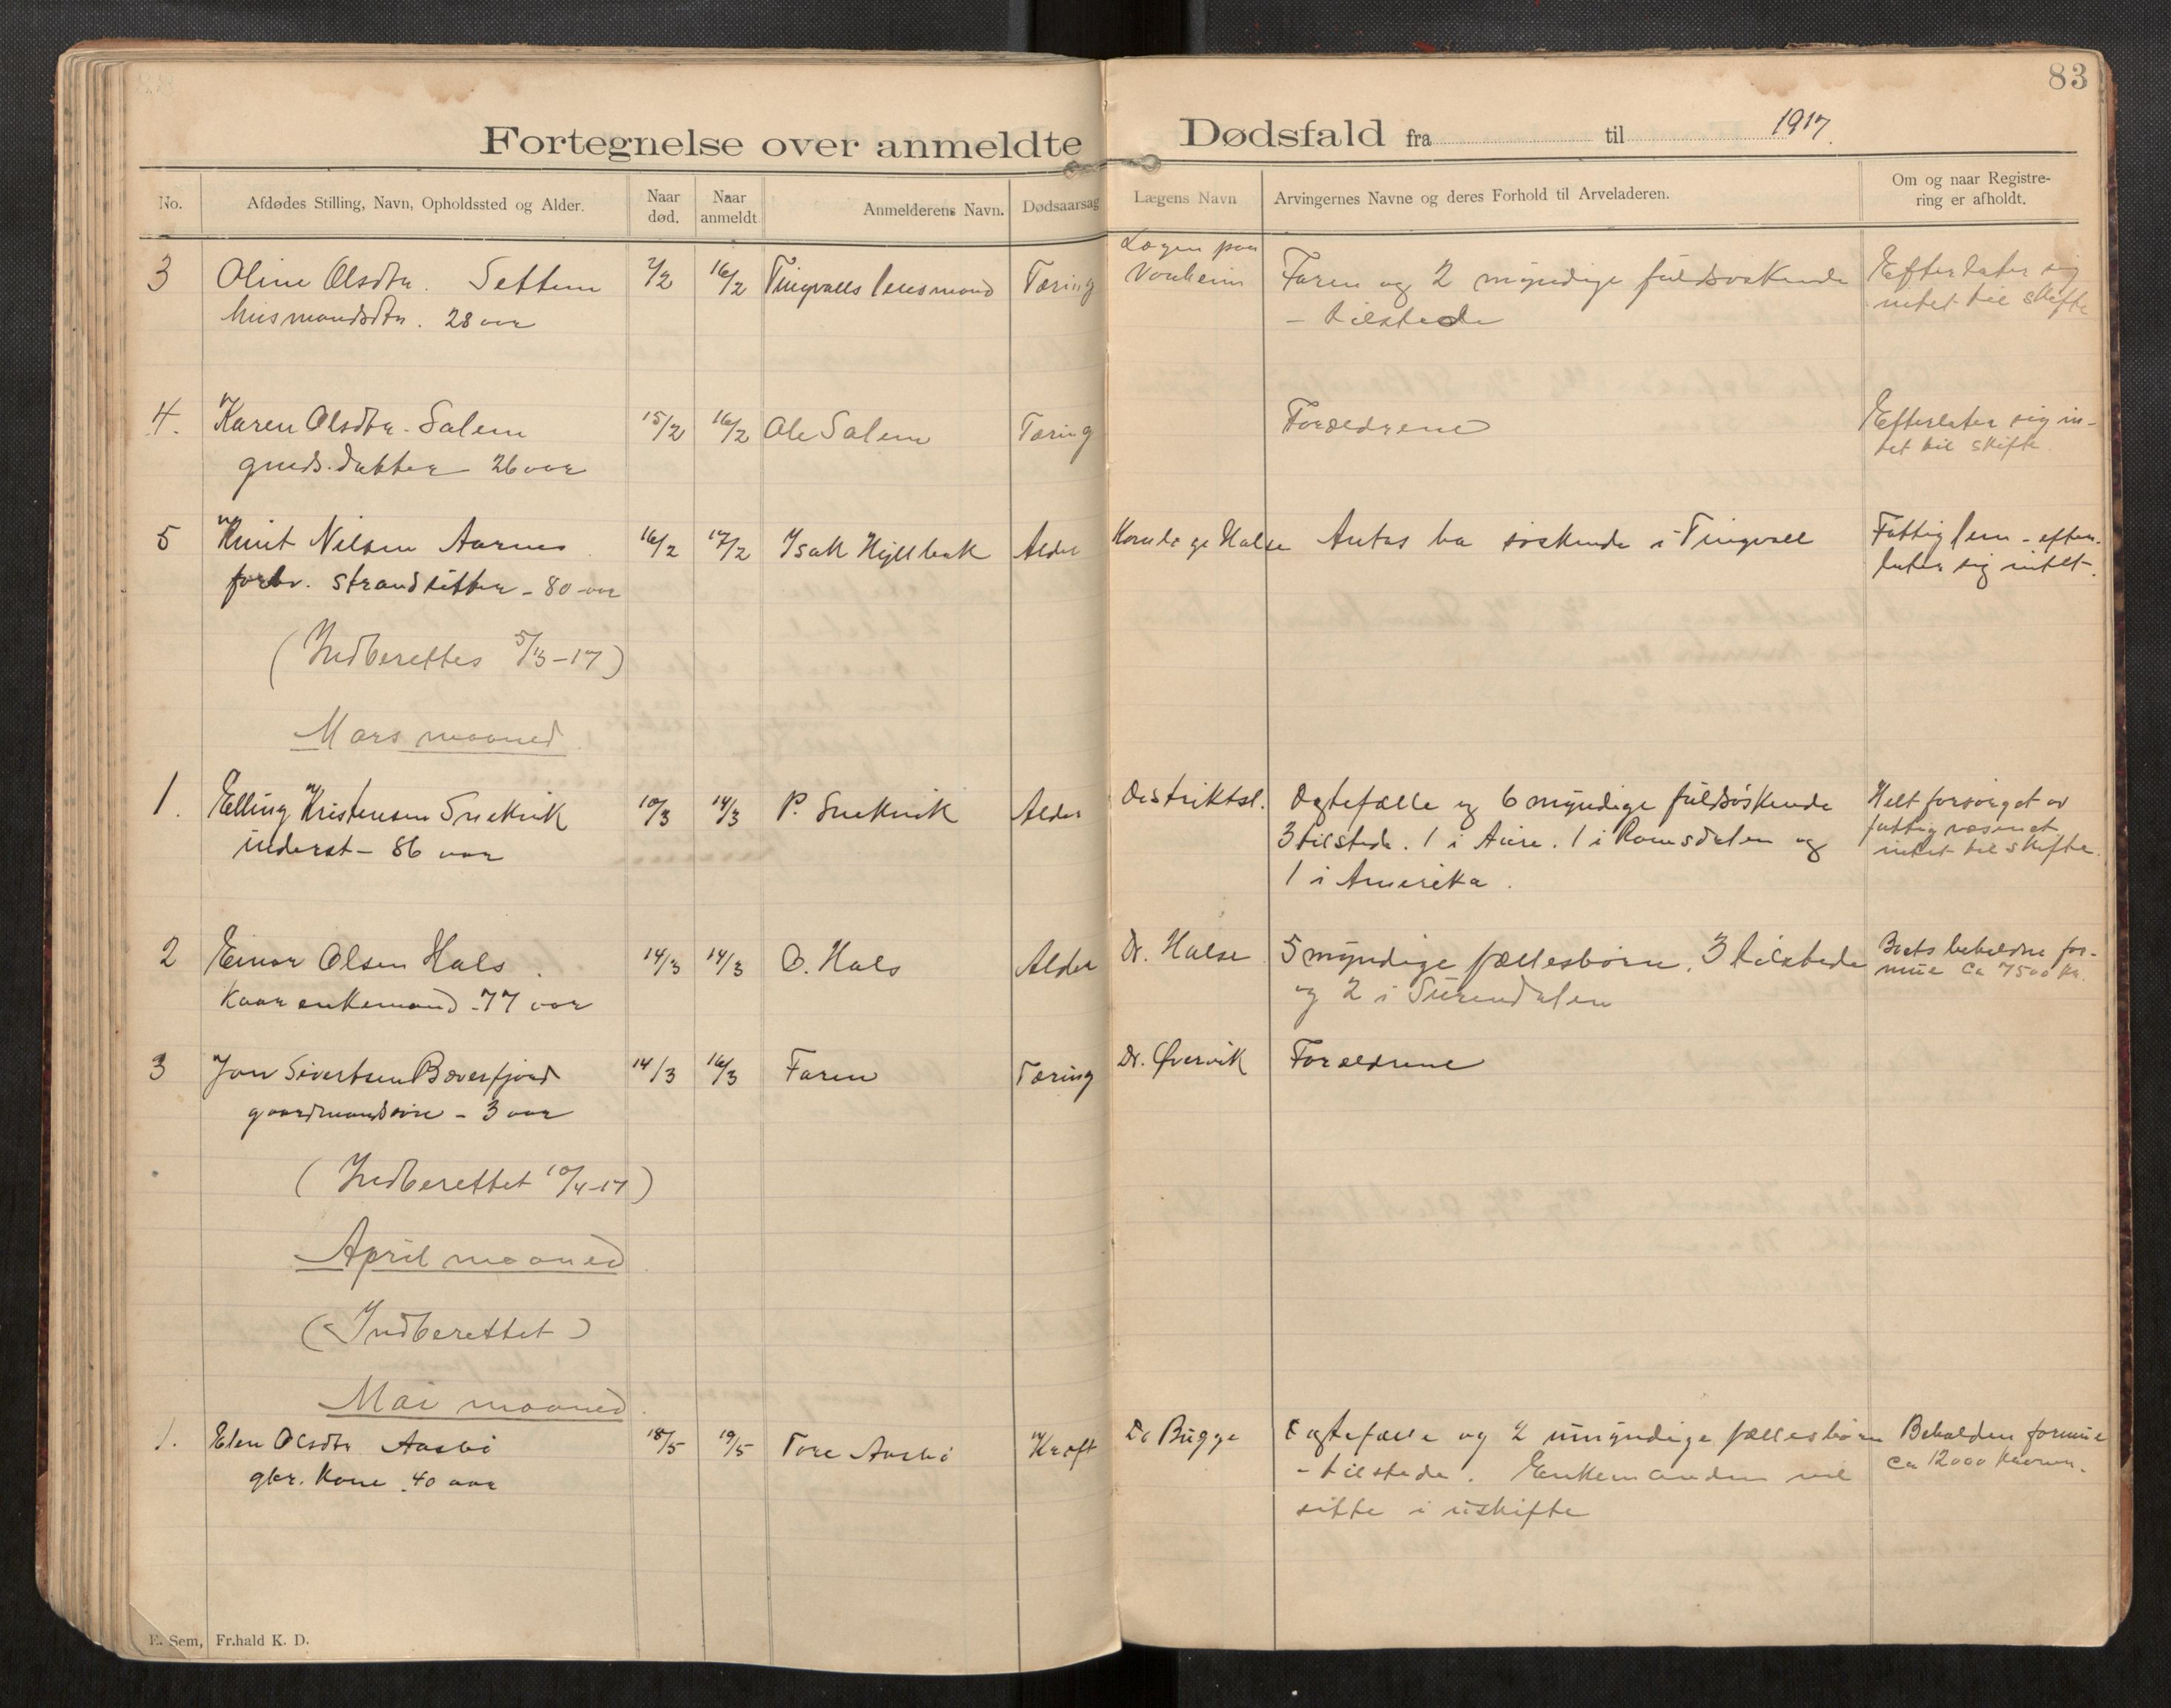 83
Fortegnelse over anmeldte Dødsfald fra til 1917.
No.
Afdødes Stilling, Navn, Opholdssted og Alder.
Naar død.
Naar anmeldt
Anmelderens Navn.
Dødsaarsag
Lægens Navn
Arvingernes Navne og deres Forhold til Arveladeren.
Om og naar Registre-
ring er afholdt.
3 Oline Olsdtr. Settem 7/2 16/2 Tingvolls lensmand Tæring Lægen paa
Vonheim Faren og 2 myndige fuldsøskende Efterlater sig
husmandsdtr. 28 aar - tilstede intet til skifte
4. Karen Olsdtr. Salem 15/2 16/2 Ole Salem Tæring Forældrene Efterlater sig in-
gmds. datter 26 aar tet til skifte.
5 Knut Nilsen Aarnes 16/2 17/2 Isak Hjellbak Alder Halse Antas ha søskende i Tingvoll Fattiglem - efter-
forhv. strandsitter - 80 aar later sig intet.
(Indberettes 5/3-17)
Mars maaned.
1. Elling Kristensen Snekvik 10/3 14/3 P. Snekvik Alder Distriktsl. Egtefælle og 6 myndige fuldsøskende Helt forsørget av
inderst - 86 aar 3 tilstede. 1 i Aure. 1 i Romsdalen og fattigvæsenet
1 i Amerika. intet til skifte.
2 Einar Olsen Hals. 14/3 14/3 O. Hals Alder Dr. Halse 5 myndige fællesbørn. 3 tilstede Boets beholdne for-
kaarenkemand - 77 aar og 2 i Surendalen mue ca 7500 kr.
3 Jon Sivertsen Bøverfjord 14/3 16/3 Faren Tæring Dr. Øvervik Forældrene
gaardmandssøn - 3 aar
(Indberettet 10/4-17)
April maaned.
(Indberettet)
Mai maaned.
1. Elen Olsdtr Aasbø 18/5 19/5 Tore Aasbø Kræft Dr Bugge Egtefælle og 2 umyndige fællesbørn Beholden formue
gbr. kone. 40 aar - tilstede. Enkemanden vil ca 12000 kroner.
sitte i uskifte
E. Sem, Fr.hald K. D.